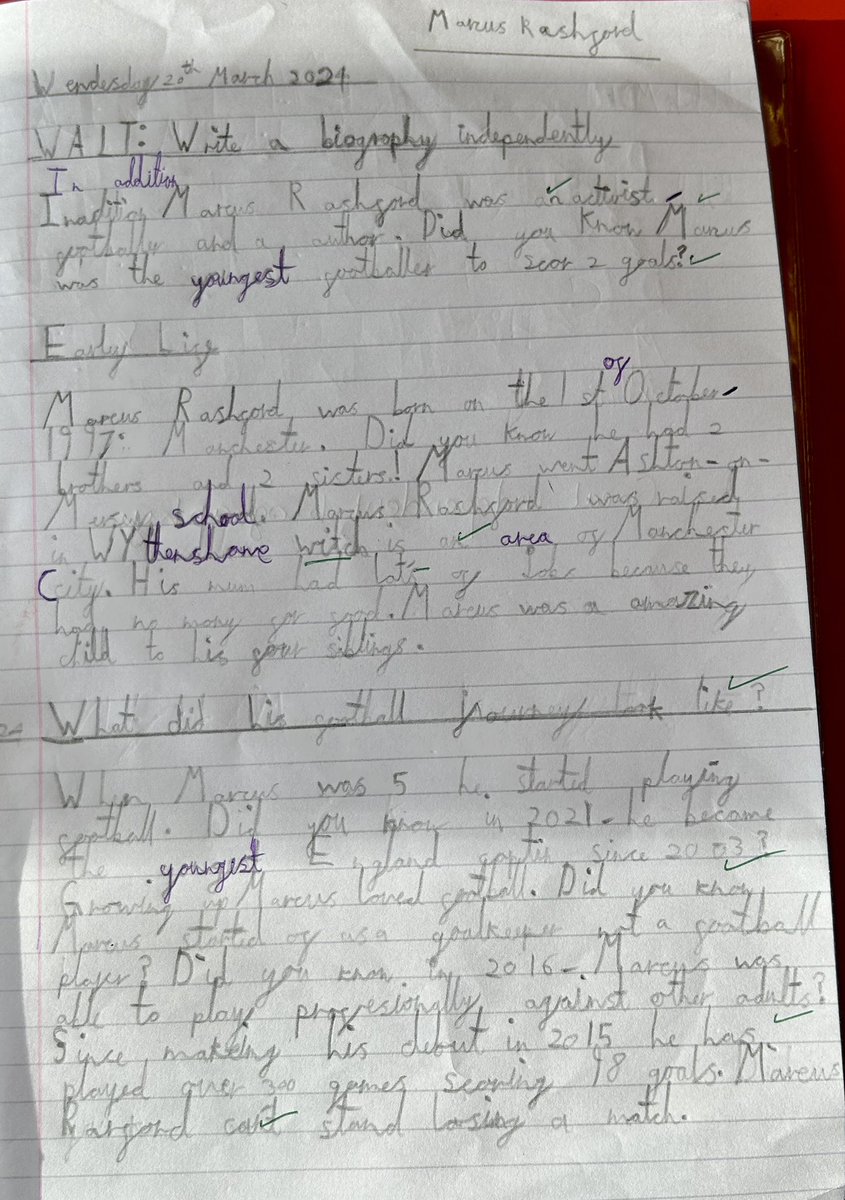 Marcus Rashgord
Wendesday 20th March 2024
WALT: Write a biography independently
In addition
Inadition Marcus Rashgord was an activist
gotbally and a author. Did you know Marcus
was the youngest gootballer to scor 2 goals?
Early Lige
of
Marcus Rashgord was born on the 1st October
1997: Manchester. Did you know he had 2
brothers and 2 sisters! Marcus went Ashton-on-
school. Marcus Rashgord was raised
in WYthenshawe witch is an area og Manchester
City. His mum had lots og Jobs because they
had no mony gor good. Marcus was a amazing
child to his gour siblings.
What did his gootball Journey look like?
When Marcus was 5 he started playing
gootball. Did you know in 2021 he became
the youngest England since 2003?
Growing up Marcus loved gootball. Did you know
Marcus started og as a goalkeeper not a gootball
player? Did you know in 2016 Marcus was
able to play progresionally against other adults?
Since makeing his debut in 2015 he has
played over 300 games scoring 98 goals. Marcus
can't stand losing a match.